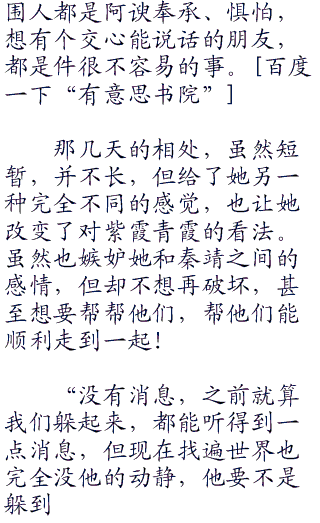 围人都是阿谀奉承、惧怕，
想有个交心能说话的朋友，
都是件很不容易的事。[百度
一下“有意思书院”]
那几天的相处，虽然短
暂，并不长，但给了她另一
种完全不同的感觉，也让她
改变了对紫霞青霞的看法。
虽然也嫉妒她和秦靖之间的
感情，但却不想再破坏，甚
至想要帮帮他们，帮他们能
顺利走到一起!
“没有消息，之前就算
我们躲起来，都能听得到一
点消息，但现在找遍世界也
完全没他的动静，他要不是
躲到